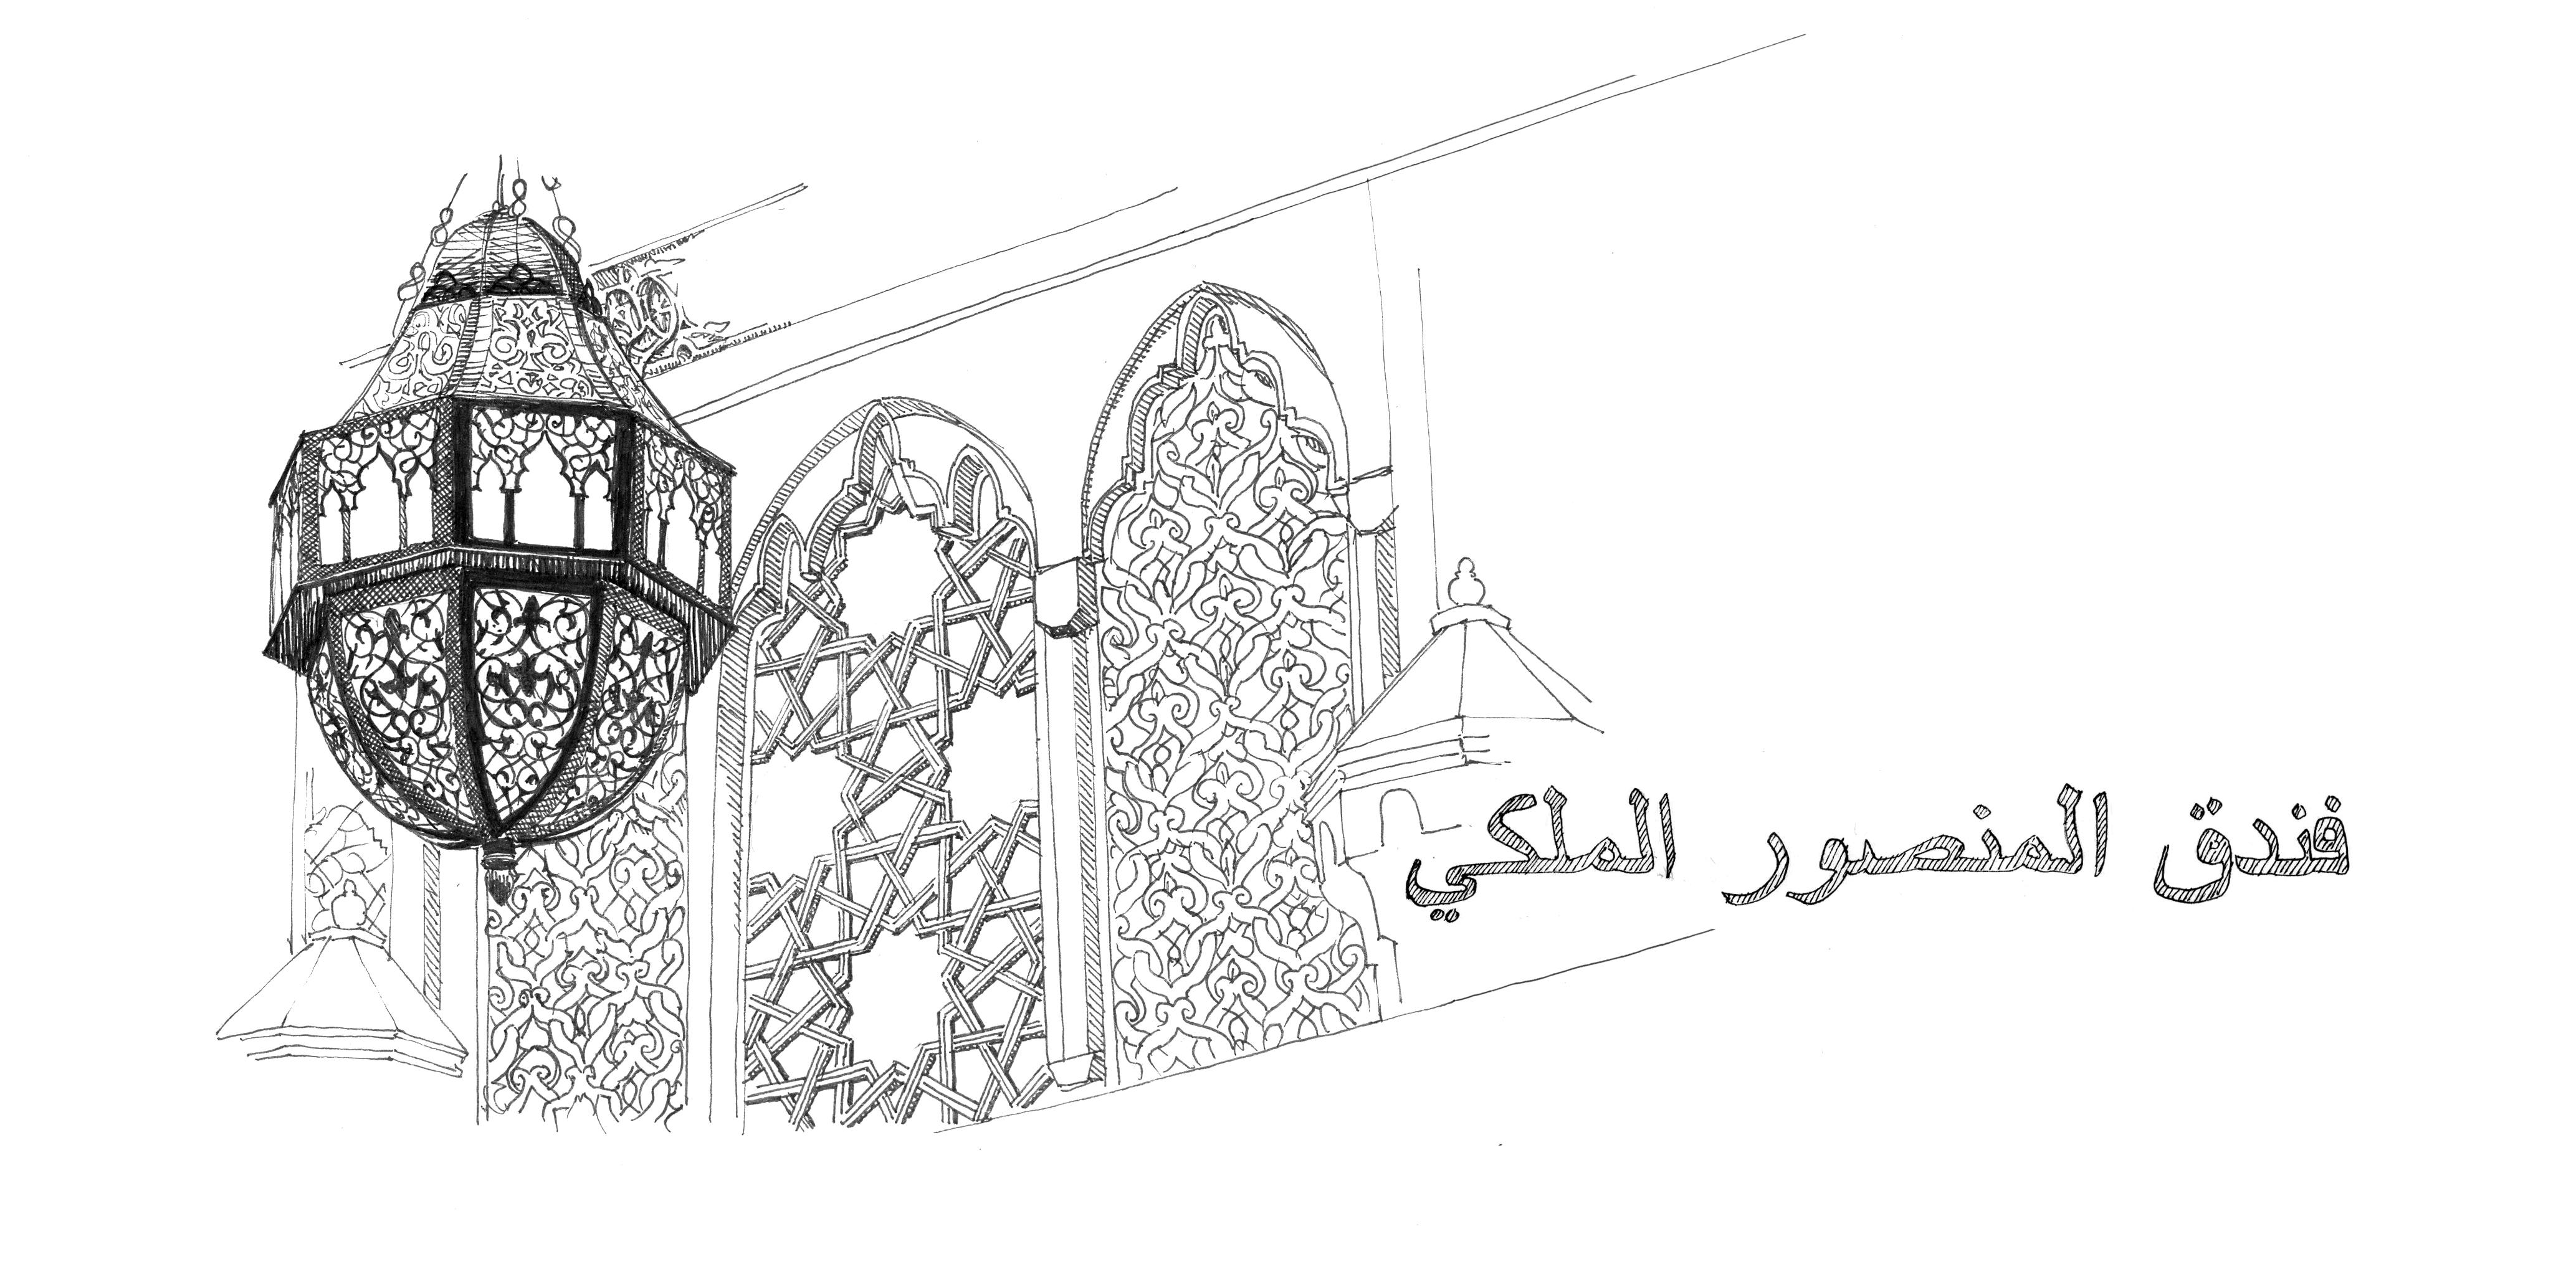 فندق المنصور الملكي